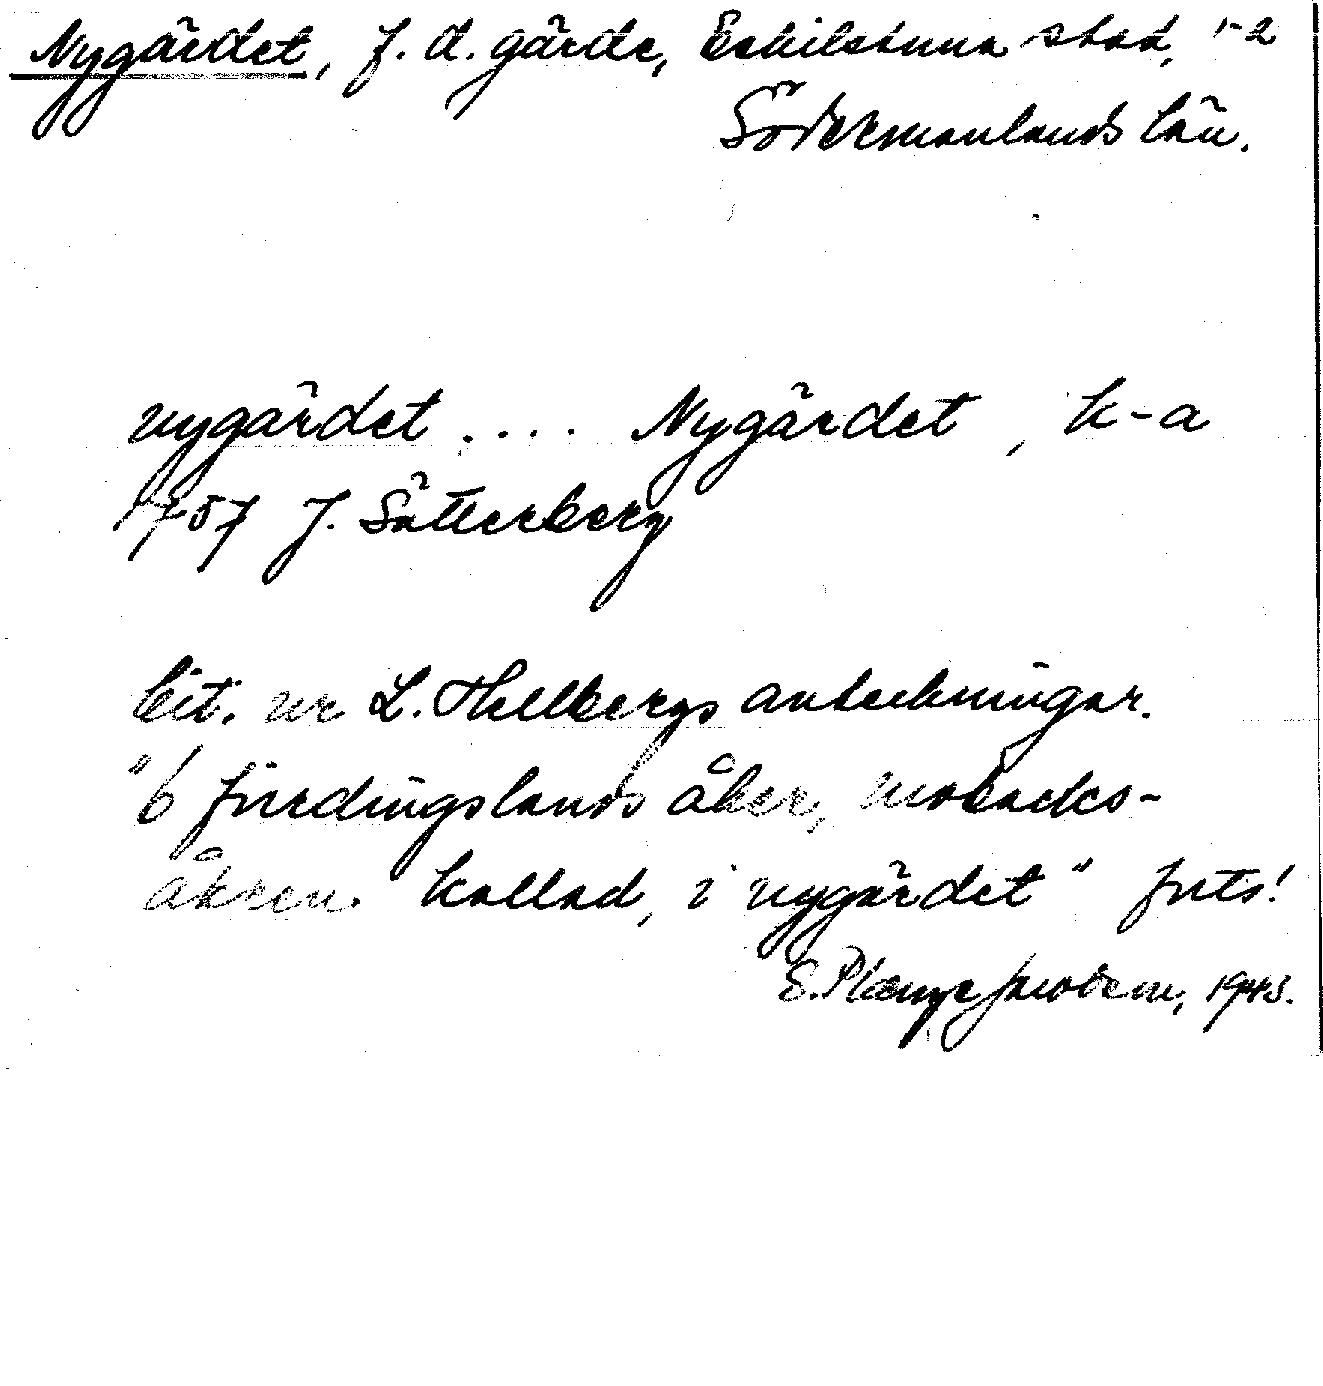 Nygärdet, f. d. gärde, Eskilstuna stad, 1-2
Södermanlands län.
nygärdet .... Nygärdet, k-a
1757 J. Sätterberg
Cit. ur L. Hellbergs anteckningar.
"6 fierdingslands åker, mobacks-
åkren kallad, i nygärdet" forts!